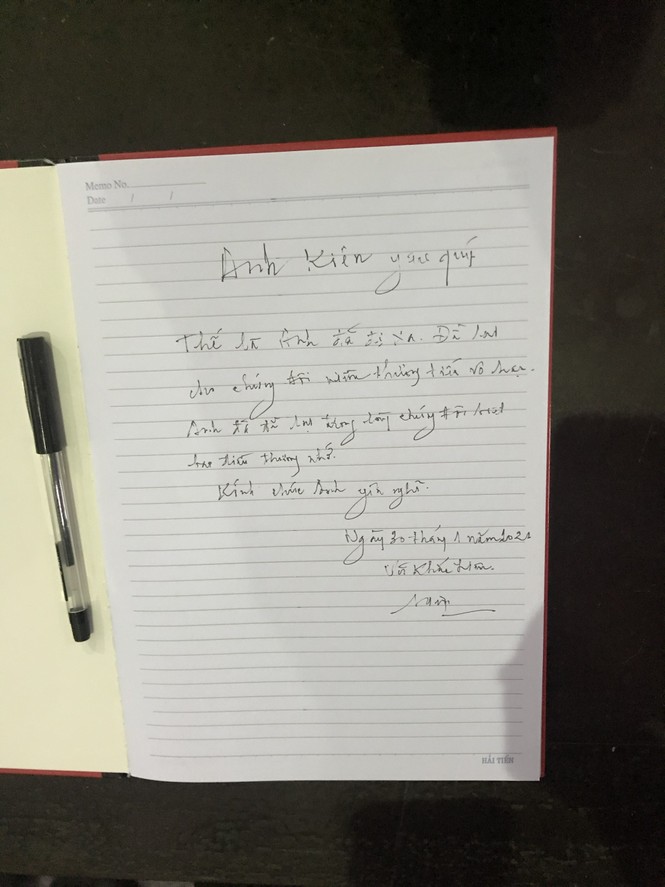 Memo No.
Date / /
Anh Kiên yêu quý
Thế là Anh đã đi xa. Để lại
cho chúng tôi niềm thương tiếc vô hạn.
Anh đã để lại trong lòng chúng tôi biết
bao tiếc thương nhớ.
Kính chúc Anh yên nghĩ.
Ngày 30 tháng 1 năm 2021
Vũ Khắc
HẢI TIẾN